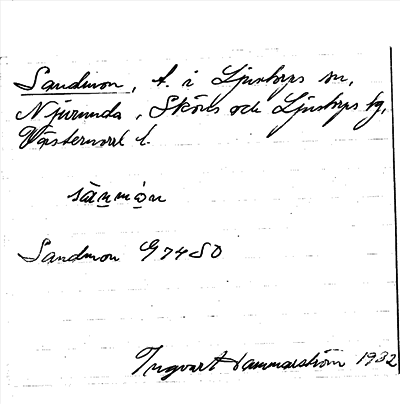 Sandmon, t. i Ljustorps sn,
Njurunda, Sköns och Ljustorps tg,
Västernorrl l.
sänmòn
Sandmon G 74 SO
Ingvart Hammarström 1932